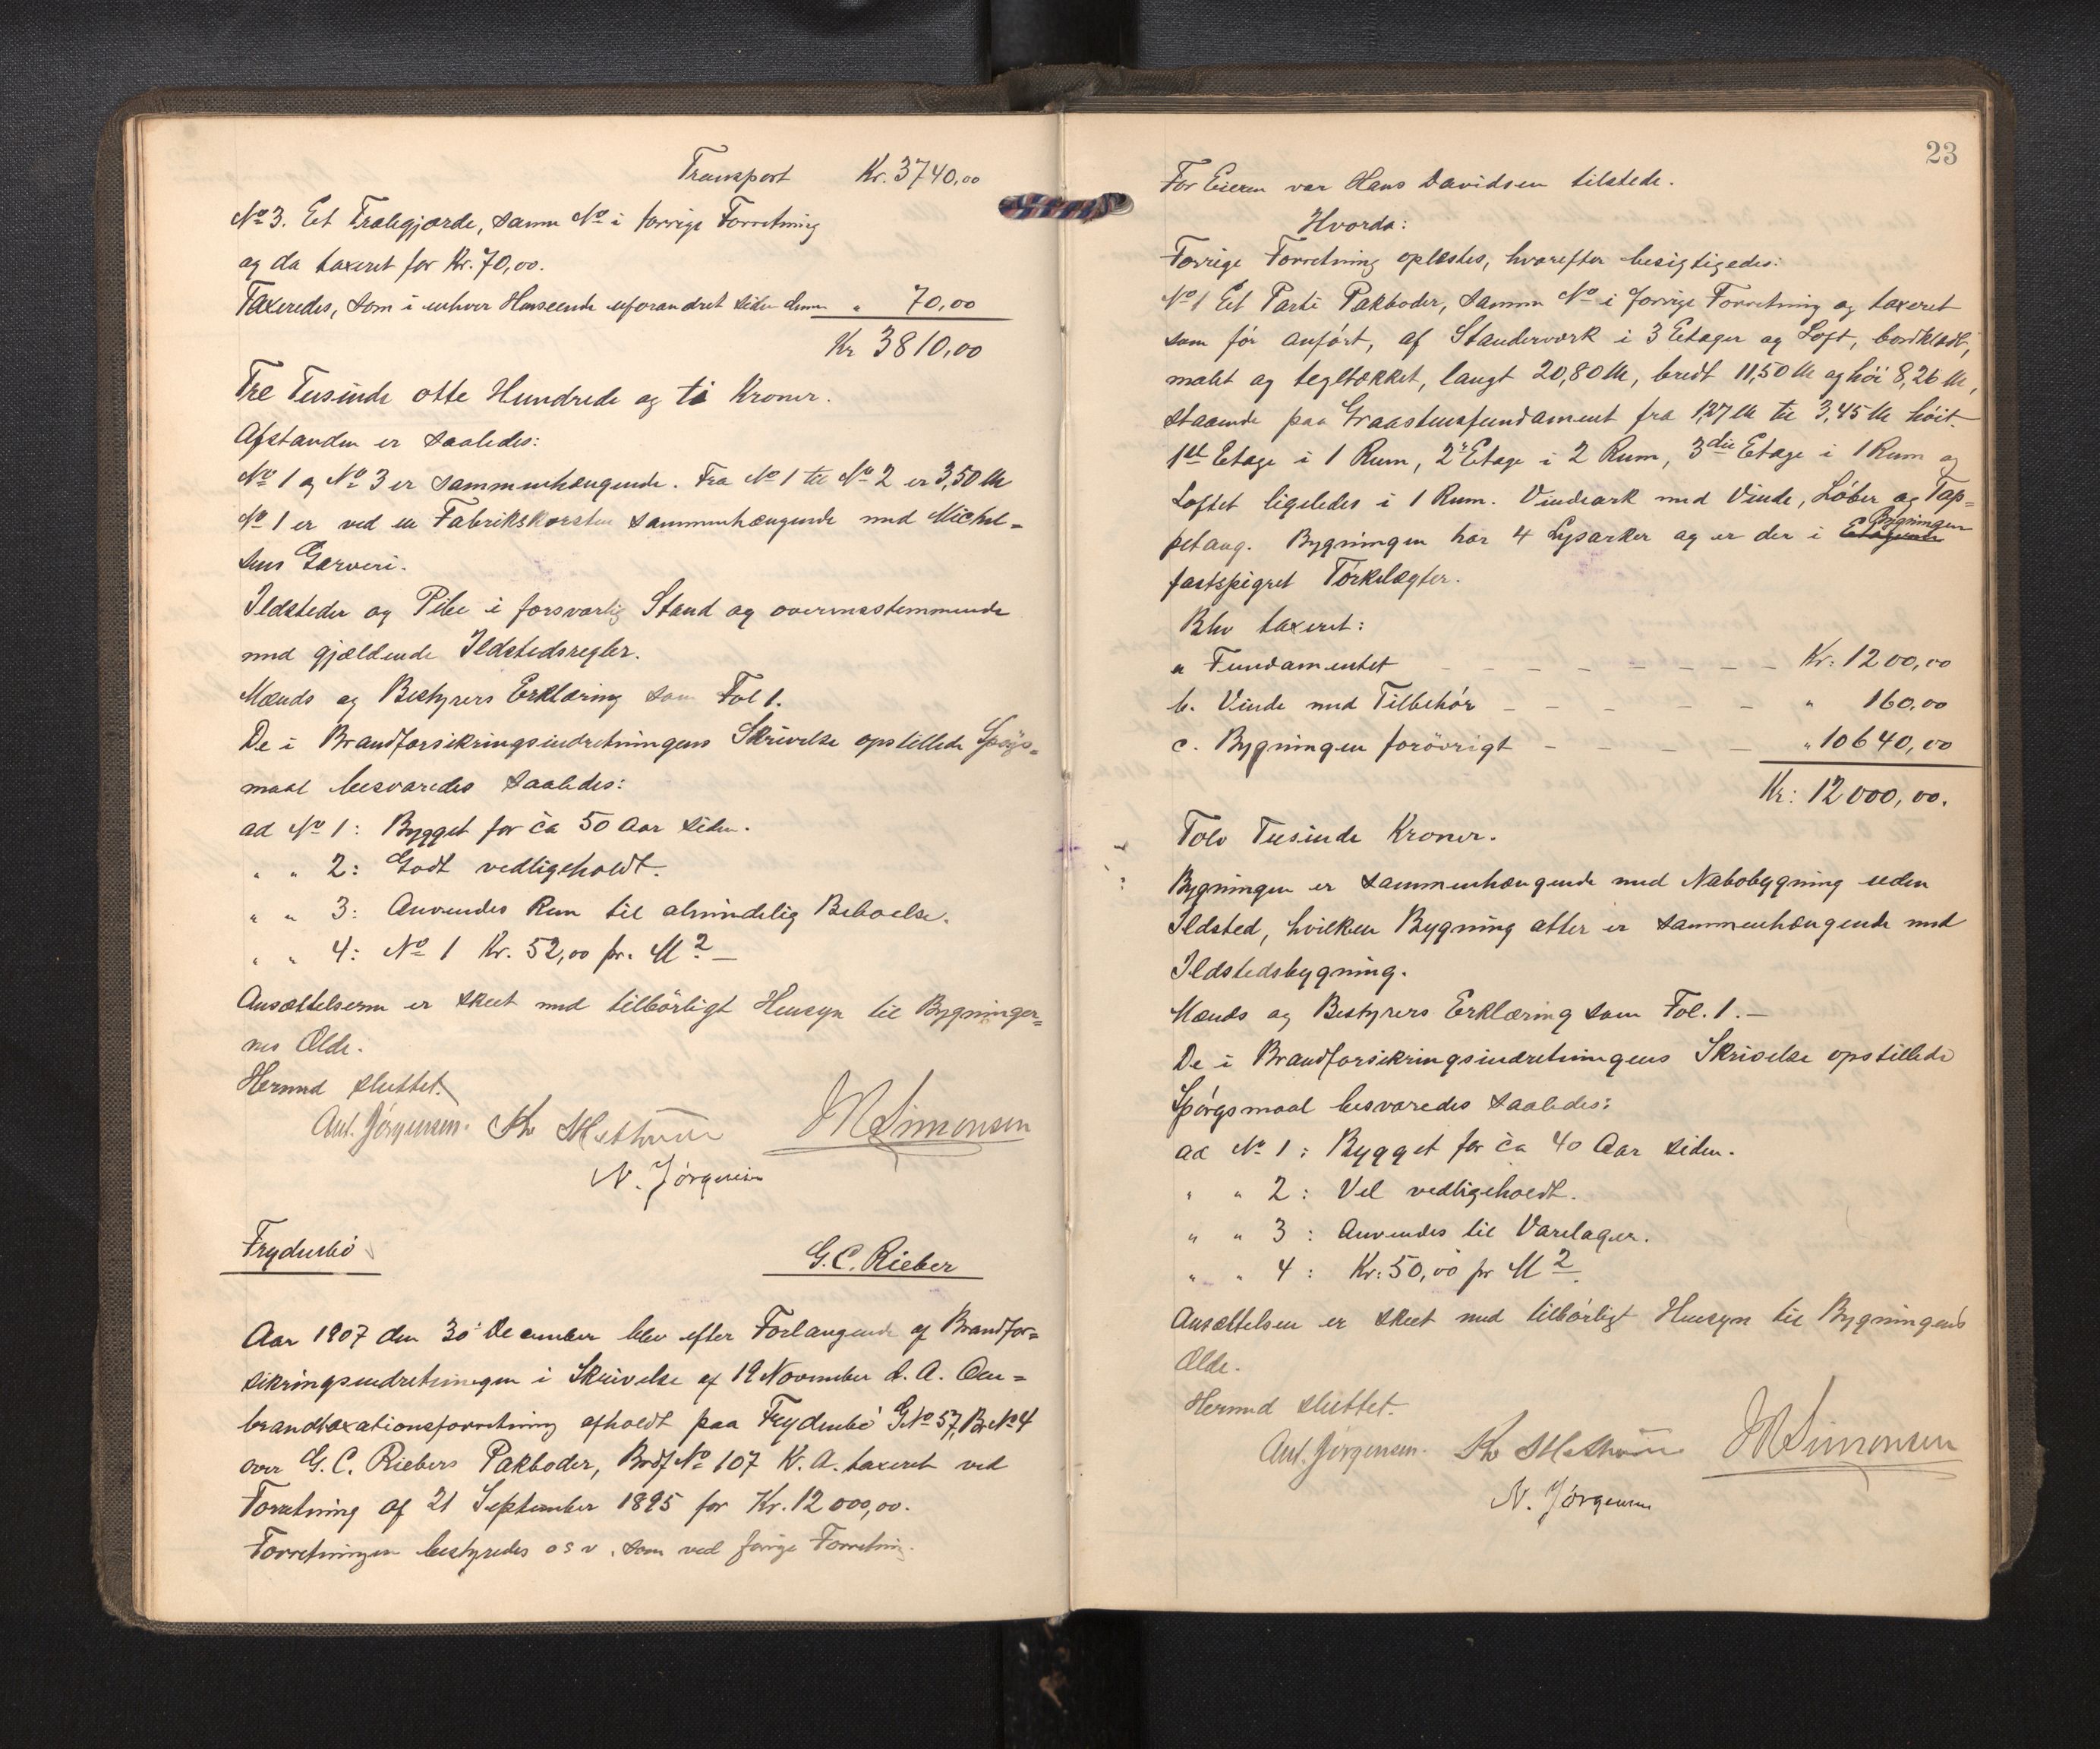 Transport Kr. 3740,00
No 3. Et Trælegjærde, samme No i forrige Forretning
og da taxeret for Kr. 70,00.
Taxeredes, som i enhver Henseende uforandret siden denne " 70,00
Kr 3810,00
Tre Tusinde otte Hundrede og ti Kroner.
Afstanden er saaledes:
No 1 og No 3 er sammenhængende. Fra No 1 til No 2 er 3,50 M
No 1 er ved en Fabrikskorsten sammenhængende med Michel=
sens Garveri.
Ildsteder og Pibe i forsvarlig Stand og overensstemmende
med gjældende Ildstedsregler.
Mænds og Bestyrers Erklæring som Fol 1.
De i Brandforsikringsindretningens Skrivelse opstillede Spörgs=
maal besvaredes saaledes:
ad No 1: Bygget for ca 50 Aar siden.
" " 2: Godt vedligeholdt.
" " 3: Anvendes Rum til almindelig Beboelse.
" " 4: No 1 Kr. 52,00 pr. M2 —
Ansættelserne er skeet med tilbörligt Hensyn til Bygninger=
nes Ælde.
Hermed sluttet.
Ant. Jørgensen. JM Simonsen
N. Jörgensen
Frydenbö
G. C. Rieber
Aar 1907 den 30' December blev efter Forlangende af Brandfor=
sikringsindretningen i Skrivelse af 19 November d. A. Om=
brandtaxationsforretning afholdt paa Frydenbö GNo 57, BrNo 4
over G. C. Riebers Pakboder, Brdf No 107 K. A. taxeret ved
Forretning af 21 September 1895 for Kr. 12 000,00.
Forretningen bestyredes o s v. som ved forrige Forretning.
23
For Eieren var Hans Davidsen tilstede.
Hvorda:
Forrige Forretning oplæstes, hvorefter besigtigedes:
No 1 Et Parti Pakboder, samme No i forrige Forretning og taxeret
som för anfört, af Stænderværk i 3 Etager og Loft, bordklædt,
malet og tegltækket, langt 20,80 M, bredt 11,50 M og höi 8,26 M,
staaende paa Graastensfundament fra 1,27 M til 3,45 M höit.
1ste Etage i 1 Rum, 2' Etage i 2 Rum, 3die Etage i 1 Rum og
Loftet ligeledes i 1 Rum. Vindeark med Vinde, Löber og Tap=
petang. Bygningen har 4 Lysarker og er der i Etagerne Bygningen
fastspigret Törkelægter.
Blev taxeret:
a Fundamentet — — — — — — — Kr: 1200,00
b. Vinde med Tilbehör — — — — — " 160,00
c. Bygningen forövrigt — — — — — " 10640,00
Kr: 12 000,00.
Tolv Tusinde Kroner.
Bygningen er sammenhængende med Nabobygning uden
Ildsted, hvilken Bygning atter er sammenhængende med
Ildstedsbygning.
Mænds og Bestyrers Erklæring som Fol. 1. —
De i Brandforsikringsindretningens Skrivelse opstillede
Spörgsmaal besvaredes saaledes:
ad No 1: Bygget for ca 40 Aar siden.
" " 2: Vel vedligeholdt.
" " 3: Anvendes til Varelager.
" " 4: Kr: 50,00 pr M2.
Ansættelsen er skeet med tilbörligt Hensyn til Bygningens
Ælde.
Hermed sluttet.
Ant. Jørgensen. JM Simonsen
N. Jörgensen